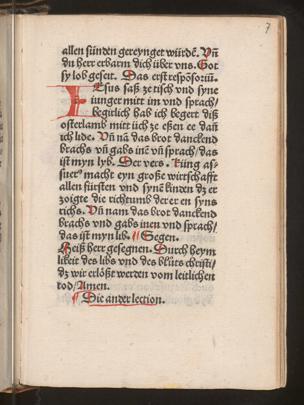 7
allen sünden gereynget würdē. Vñ
du herr erbarm dich über vns. Got
sy lob geseit. Das erst respōsoriū.
Iesus saß ze tisch vnd syne
iunger mitt im vnd sprach/
begirlich hab ich begert diß
osterlamb mitt üch ze eßen ee dañ
ich lide. Vñ nā das brot danckend
brachs vñ gabs inē vñ sprach/ das
ist myn lyb. Der vers. Küng as-
suerꝰ macht eyn große wirtschafft
allen fürsten vnd synē kinden dz er
zoigte die richtumb der er en syns
richs. Vñ nam das brot danckend
brachs vnd gabs inen vnd sprach/
das ist myn lib. ¶ Segen.
Heiß herr gesegnen. Durch heym
likeit des libs vnd des blůts christi/
dz wir erlößt werden vom leitlichen
tod/ Amen.
¶ Die ander lection.